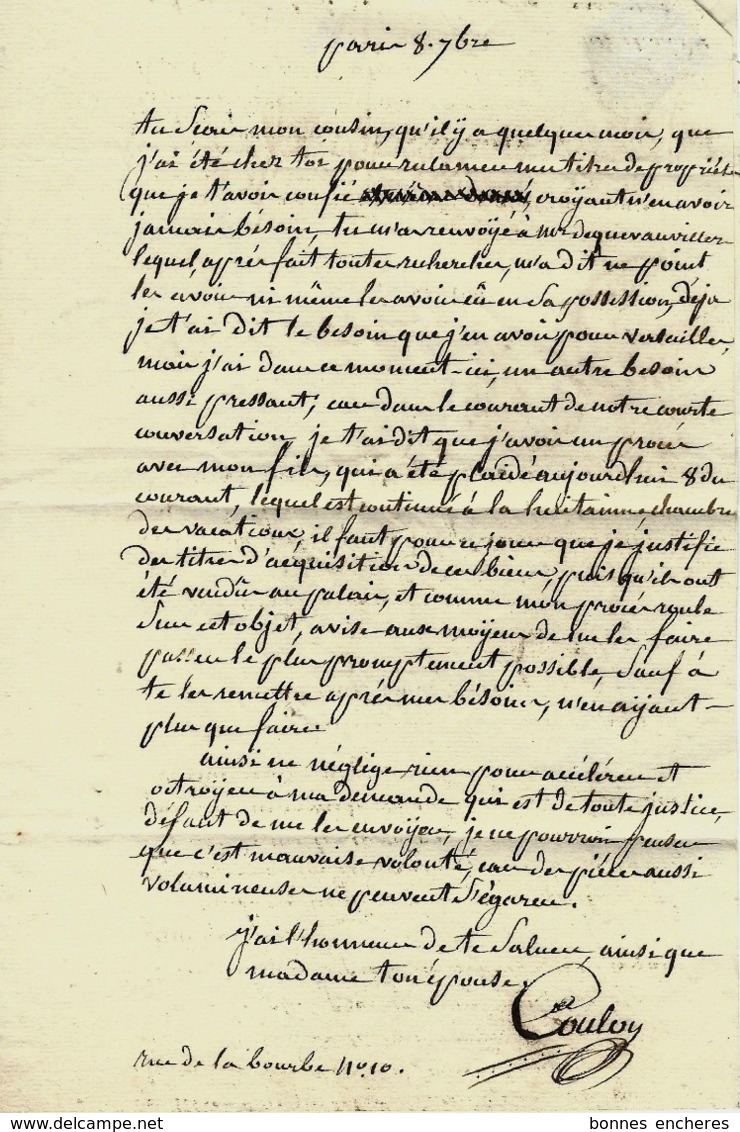 paris 8. 7bre
tu Scais mon cousin, qu'il y a quelques mois, que
j'ai été chez toi pour reclamer mes titres de propriété
que je t'avois confié croyant n'en avoir
jamais bésoin, tu m'a renvoyé à Mr dequevauviller
lequel, aprés fait toutes recherches, m'a dit ne point
les avoir ni même les avoir eû en Sa possession, déja
je t'ai dit le besoin que j'en avois pour versailles,
mais j'ai dans ce moment-ici, un autre besoin
aussi pressant, car dans le courant de notre courte
conversation, je t'ai dit que j'avois un procès
avec mon fils, qui a été plaidé aujourdhui 8 du
courant, lequel est continué à la huitainne, chambre
des vacations, il faut pour ce jour que je justifie
des titres d'acquisition de ces biens, puisqu'ils ont
été vendûs au palais, et comme mon procès roule
Sur cet objet, avise aux moÿens de me les faire
passer le plus promptement possible, Sauf à
te les remettre après mes bésoins, n'en aÿant
plus que faire.
ainsi ne néglige rien pour accélérer et
octroyer à ma demande qui est de toute justice,
défaut de me les envoyer, je ne pourrois penser
que c'est mauvaise volonté, car des piéces aussi
volumineuses ne peuvent S'égarer.
j'ai l'honneur de te Saluer, ainsi que
madame ton épouse.
Coulon
rue de la bourbe No. 10.
bonnes encheres